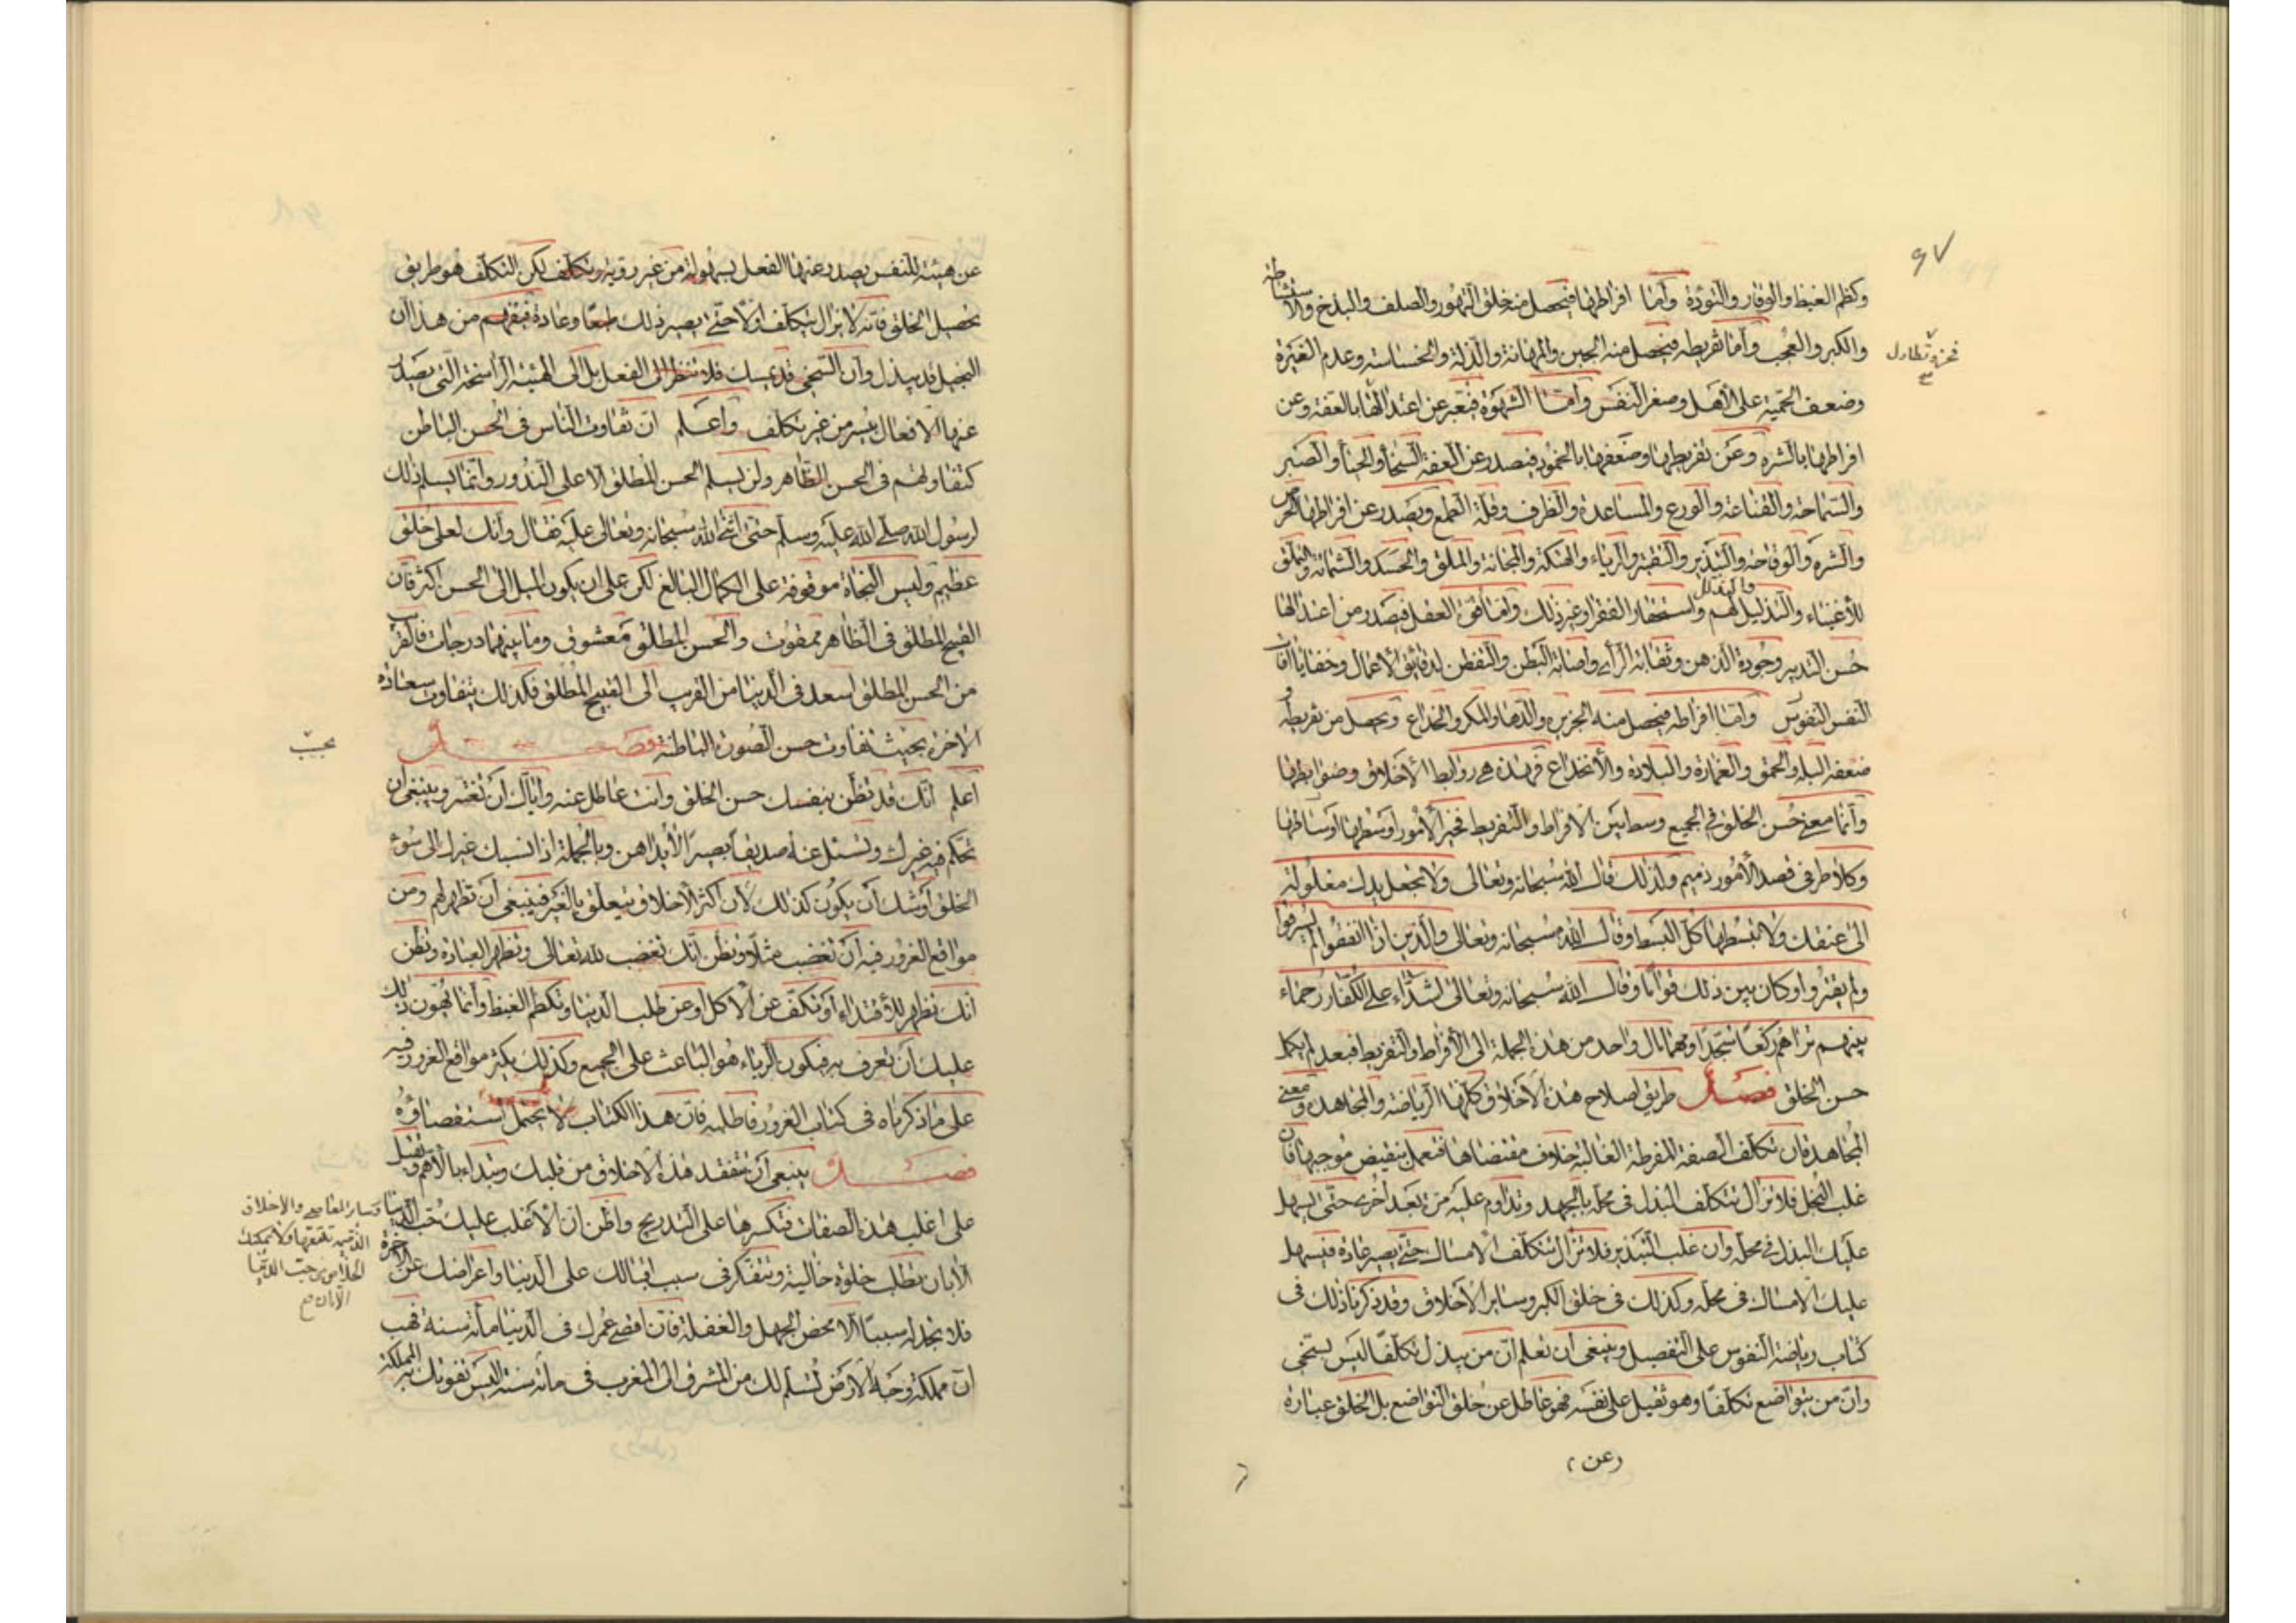 ٩٧
وكظم الغيظ والوقار والتؤدة وأما افراطها فيحصل منه خلق التهور والصلف والبذخ والاستشاطة
والكبر والعجب وأما تفريطه فيحصل منه الجبن والمهانة والذلة والخساسة وعدم الغيرة
وضعف الحمية على الأهل وصغر النفس وأما الشهوة فيعبر عن اعتدالها بالعفة وعن
افراطها بالشره وعن تفريطها وضعفها بالخمود فيصدر عن العفة السخاء والحياء والصبر
والسماحة والقناعة والورع والمساعدة والظرف وقلة الطمع ويصدر عن افراطها الحرص
والشره والوقاحة والتبذير والتقتير والرياء والهتكة والمجانة والملق والحسد والشماتة والتملق
للأغنياء والتذليل لهم والتذلل واستحقار الفقراء وغير ذلك وأما قوة العقل فيصدر من اعتدالها
حسن التدبير وجودة الذهن وثقابة الرأي واصابة الظن والتفطن لدقائق الاعمال وخفايا آفات
النفس النفوس وأما افراطه فيحصل منه الجربزة والدهاء والمكر والخداع ويحصل من تفريطه و
ضعفه البله والحمق والغمارة والبلادة والأنخداع فهذه هي روابط الأخلاق وضوابطها
وانما معنى حسن الخلق في الجميع وسط بين الافراط والتفريط فخير الأمور أوسطها اوساطها
وكلا طرفي قصد الأمور ذميم ولذلك قال الله سبحانه وتعالى ولا تجعل يدك مغلولة
الى عنقك ولا تبسطها كل البسط وقال الله سبحانه وتعالى والذين اذا انفقوا لم يسرفوا
ولم يقتروا وكان بين ذلك قواما وقال الله سبحانه وتعالى اشداء على الكفار رحماء
بينهم تراهم ركعا سجدا ومهما مال واحد من هذه الجملة الى الأفراط والتفريط فبعد لم يكمل
حسن الخلق فصل طريق اصلاح هذه الأخلاق كلها الرياضة والمجاهدة ومعنى
المجاهدة ان تكلف الصفة المفرطة الغالبة خلاف مقتضاها فتعمل بنقيض موجبها فان
غلب البخل فلا تزال تتكلف البذل في محله بالجهد وتداوم عليه مرة بعد أخرى حتى يسهل
عليك البذل في محله وان غلب التبذير فلا تزال تتكلف الامساك حتى يصير عادة فيسهل
عليك الامساك في محله وكذلك في خلق الكبر وساير الأخلاق وقد ذكرنا ذلك في
كتاب رياضة النفوس على التفصيل وينبغي ان تعلم ان من يبذل تكلفا ليس بسخي
وان من يتواضع تكلفا وهو ثقيل على نفسه فهو عاطل عن خلق التواضع بل الخلق عبارة
عن
عن هيئة للنفس يصدر عنها الفعل بسهولة من غير روية وتكلف لكن التكلف هو طريق
تحصيل الخلق فانه لا يزال يتكلف اولا حتى يصير ذلك طبعا وعادة فيفهم من هذا ان
البخيل قد يبذل وان السخي قد يمسك فلا تنظر الى الفعل بل الى الهيئة الراسخة التي يصدر
عنها الافعال بيسر من غير تكلف واعلم ان تفاوت الناس في الحسن الباطن
كتفاوتهم في الحسن الظاهر ولن يسلم الحسن المطلق الا على الندور وانما يسلم ذلك
لرسول الله صلى الله عليه وسلم حتى اثنى الله سبحانه وتعالى عليه فقال وانك لعلى خلق
عظيم وليس النجاة موقوفة على الكمال البالغ لكن على ان يكون الميل الى الحسن اكثر فان
القبيح المطلق في الظاهر ممقوت والحسن المطلق معشوق وما بينهما درجات فالقريب
من الحسن المطلق اسعد في الدنيا من القريب الى القبيح المطلق فكذلك يتفاوت سعادة
الاخرة بحيث تفاوت حسن الصورة الباطنة فصل
بحسب
اعلم انك قد تظن بنفسك حسن الخلق وانت عاطل عنه واياك ان تغتر وينبغي ان
تحكم فيه غيرك وتسئل عنه صديقا بصيرا لا يداهن وبالجملة اذا نسبك غيرك الى سوء
الخلق أوشك ان يكون كذلك لأن اكثر الاخلاق يتعلق بالغير فينبغي ان تظهر لهم ومن
مواقع الغرور فيه ان تغضب مثلا وتظن انك تغضب لله تعالى وتظهر العبادة وتظن
انك تظهر للأقتداء أو تكف عن الاكل وعن طلب الدنيا وتكظم الغيظ وانما يهون ذلك
عليك ان تعرف به فيكون الرياء هو الباعث على الجميع وكذلك يكثر مواقع الغرور فيه
على ما ذكرناه في كتاب الغرور فاطلبه فان هذا الكتاب لا يحتمل استقصاؤه
فصل ينبغي ان تتفقد هذه الاخلاق من قلبك وتبدأ بالاهم وتقبل
على اغلب هذه الصفات فتكسرها على التدريج واظن ان الاغلب عليك حب الدنيا
وساير المعاصي والاخلاق
الآن تطلب خلوة خالية وتتفكر في سبب اقبالك على الدنيا واعراضك عن الاخرة
فلا تجد له سببا الا محض الجهل والغفلة فان اقصى عمرك في الدنيا مائة سنة فهب
ان مملكة وجه الارض تسلم لك من المشرق الى المغرب في مائة سنة اليس تفوتك به المملكة